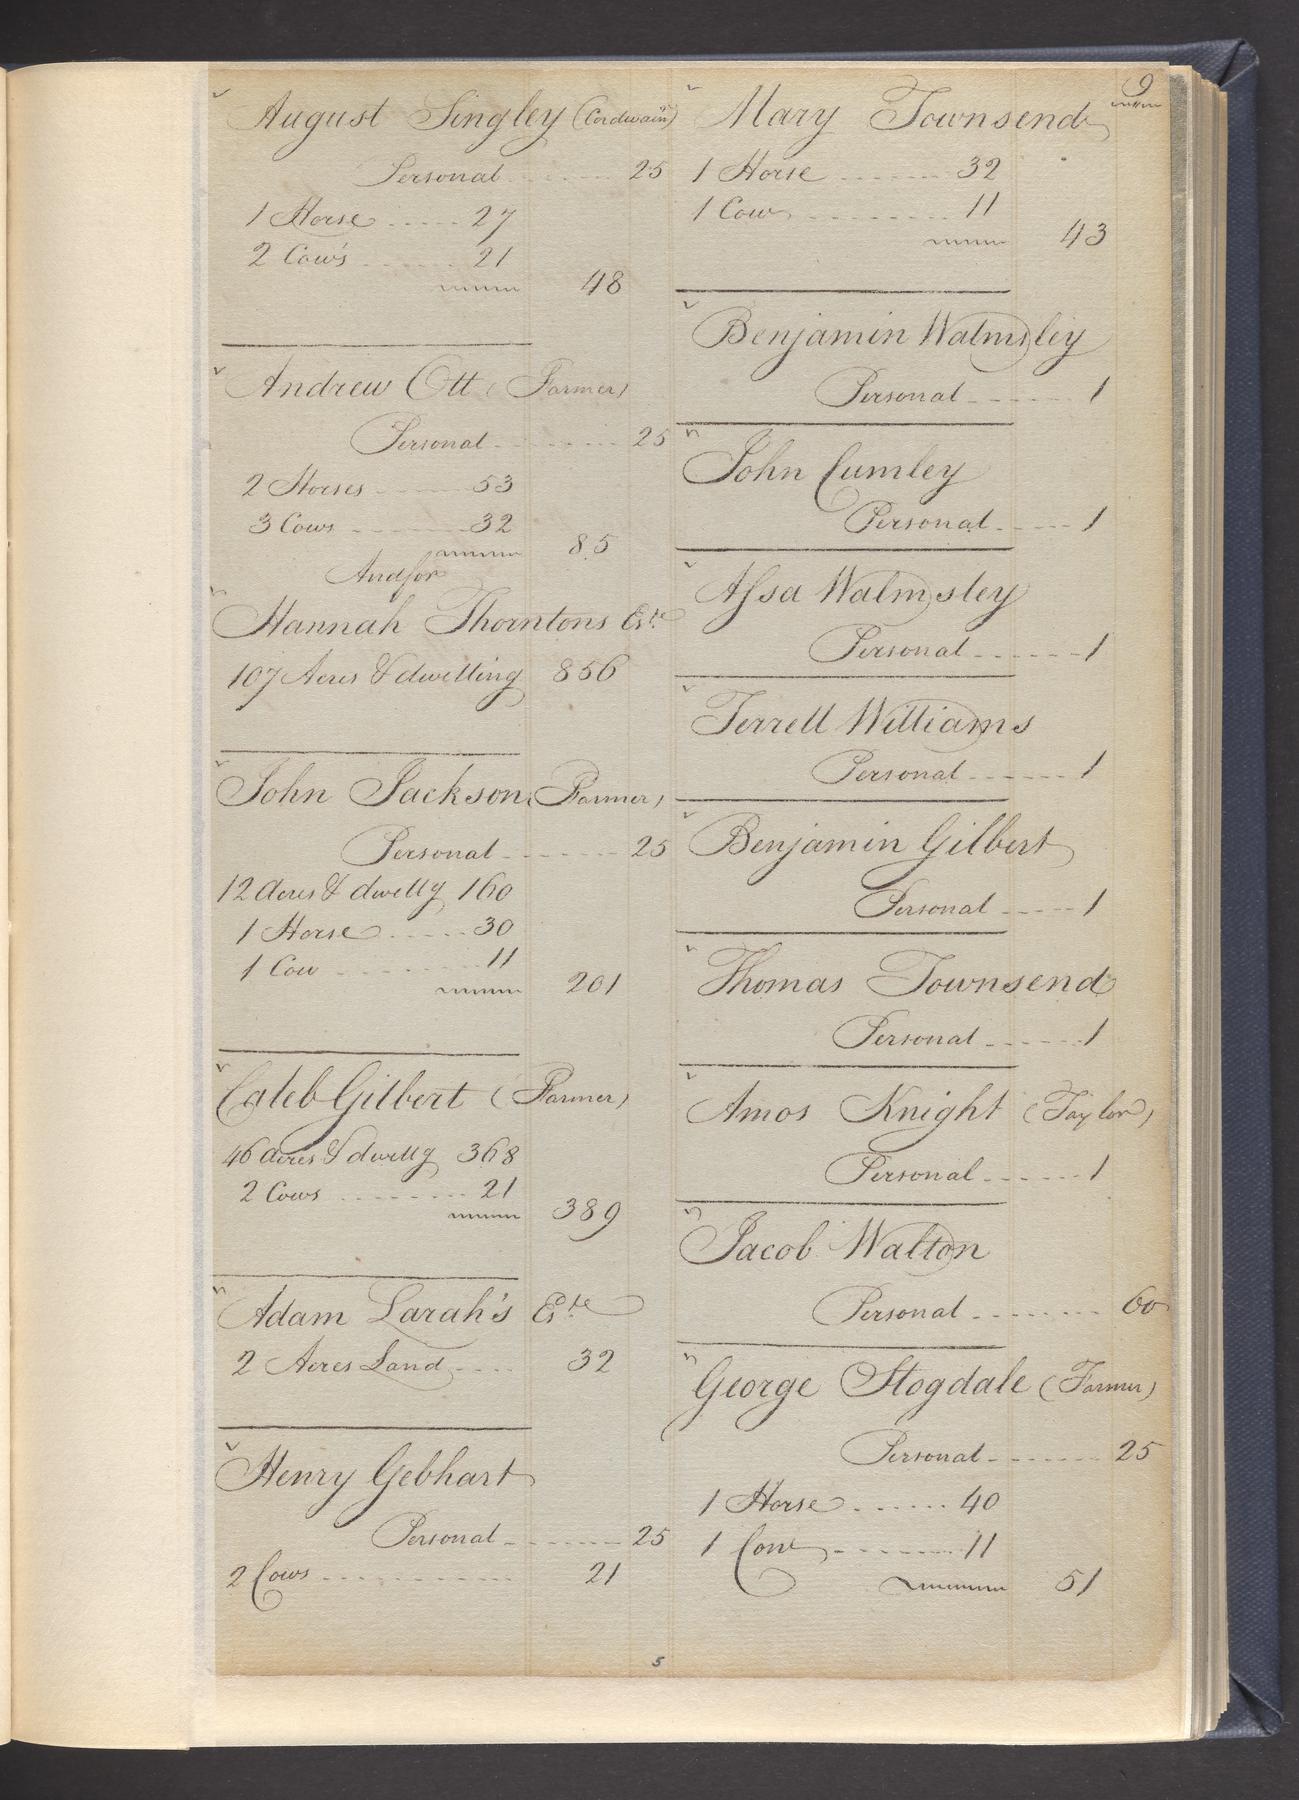 August Singley (Cordwainr)
Personal ...... 25
1 Horse ..... 27
2 Cow's ...... 21
48
Andrew Ott (Farmer)
Personal ........ 25
2 Horses ...... 53
3 Cows ....... 32
85
And for
Hannah Thorntons Este
107 Acres & dwelling 856
John Jackson (Farmer)
Personal ....... 25
12 acres & dwellg 160
1 Horse ..... 30
1 Cow ........ 11
201
Caleb Gilbert (Farmer)
46 acres & dwellg 368
2 Cows ........ 21
389
Adam Larah's Este
2 Acres Land .... 32
Henry Gebhart
Personal ........ 25
2 Cows ............ 21
5
9
Mary Townsend
1 Horse ....... 32
1 Cow ......... 11
43
Benjamin Walmsley
Personal ...... 1
John Cumley
Personal ..... 1
Assa Walmsley
Personal ...... 1
Terrell Williams
Personal ...... 1
Benjamin Gilbert
Personal ..... 1
Thomas Townsend
Personal ...... 1
Amos Knight (Taylor)
Personal ...... 1
Jacob Walton
Personal ........ 60
George Stogdale (Farmer)
Personal ........ 25
1 Horse ...... 40
1 Cow ........ 11
51